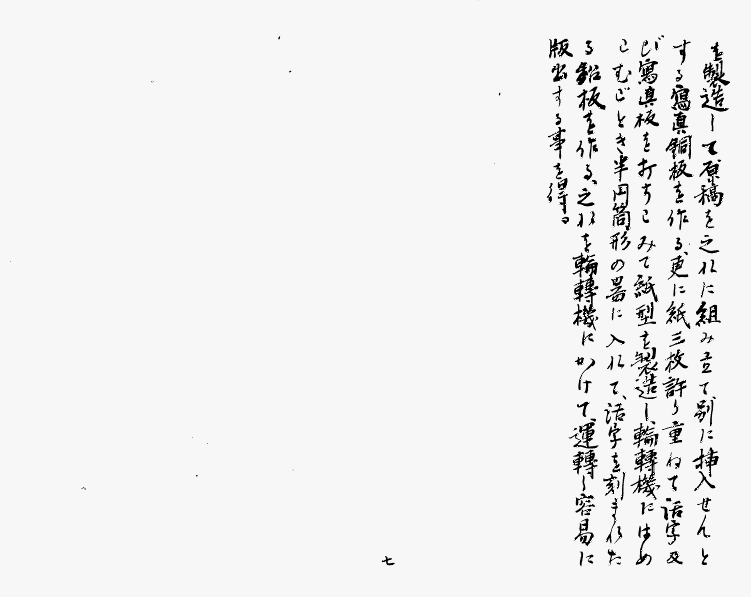 を製造して原稿を之れに組み立て別に挿入せんと
する寫眞銅板を作る、更に紙三枚許り重ねて活字及
び寫眞板を打ちこみて紙型を製造し、輪轉機にはめ
こむごとき半円筒形の器に入れて、活字を刻まれた
る鉛板を作る、之れを輪轉機にかけて、運轉し容易に
版出する事を得る
七